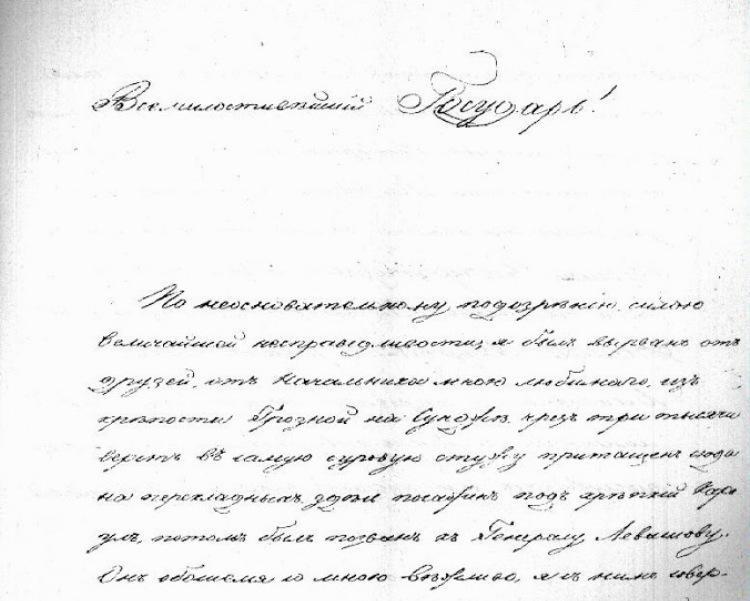 Всемилостивейшій Государь!
По неосновательному подозрѣнію, силою
величайшей несправедливости, я былъ вырванъ отъ
друзей, отъ начальника мною любимаго, изъ
крѣпости Грозной на Сундже, чрезъ три тысячи
верстъ въ самую суровую стужу притащенъ сюда
на перекладныхъ, здѣсь посаженъ подъ крѣпкій кара-
улъ, потомъ былъ позванъ къ Генералу Левашову.
Онъ обошелся со мною вѣжливо, я съ нимъ совер-